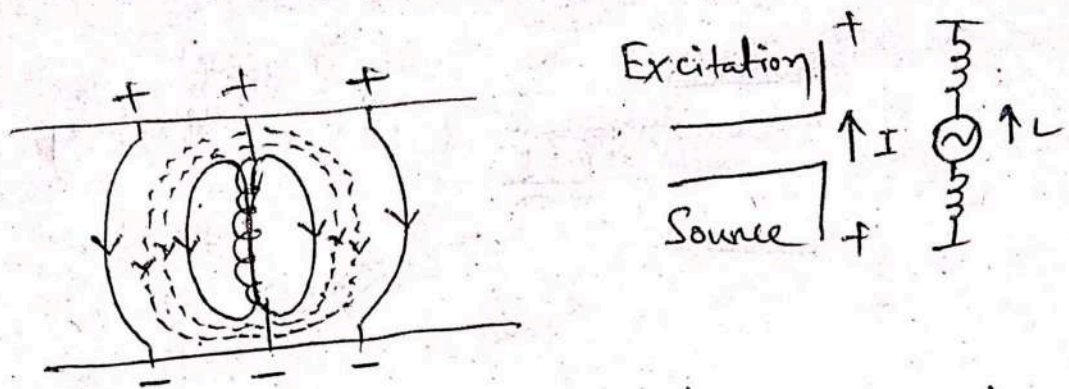 + + +
- - -
Excitation +
↑ I
↑ L
Source +